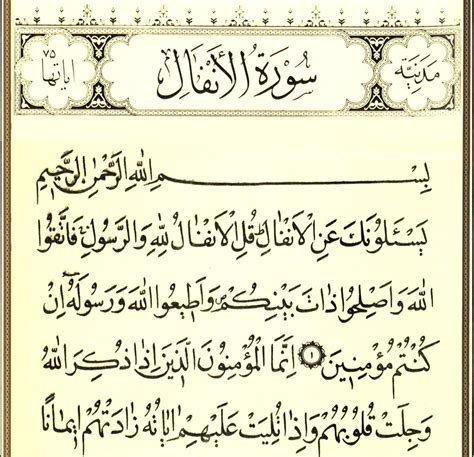 مَدَنِيَّة سُورَةُ الْأَنْفَالِ اٰيَاتُهَا ٧٥
بِسْمِ اللّٰهِ الرَّحْمٰنِ الرَّحٖيمِ
يَسْـَٔلُونَكَ عَنِ الْاَنْفَالِؕ قُلِ الْاَنْفَالُ لِلّٰهِ وَالرَّسُولِۚ فَاتَّقُوا
اللّٰهَ وَاَصْلِحُوا ذَاتَ بَيْنِكُمْࣕ وَاَطٖيعُوا اللّٰهَ وَرَسُولَهُٓ اِنْ
كُنْتُمْ مُؤْمِنٖينَ ١ اِنَّمَا الْمُؤْمِنُونَ الَّذٖينَ اِذَا ذُكِرَ اللّٰهُ
وَجِلَتْ قُلُوبُهُمْ وَاِذَا تُلِيَتْ عَلَيْهِمْ اٰيَاتُهُ زَادَتْهُمْ اٖيمَانًا